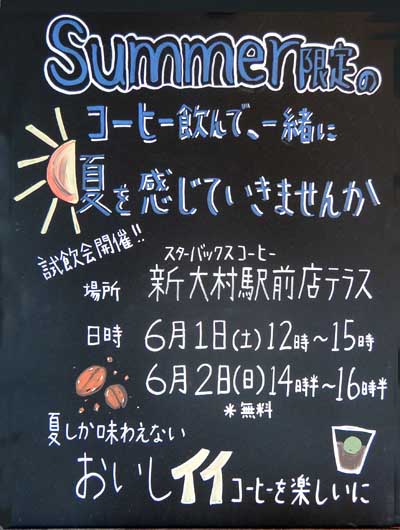 Summer限定の
コーヒー飲んで、一緒に
夏を感じていきませんか
試飲会開催!!
スターバックスコーヒー
場所 新大村駅前店テラス
日時 6月1日(土)12時〜15時
6月2日(日)14時半〜16時半
*無料
夏しか味わえない
おいしイイコーヒーを楽しいに